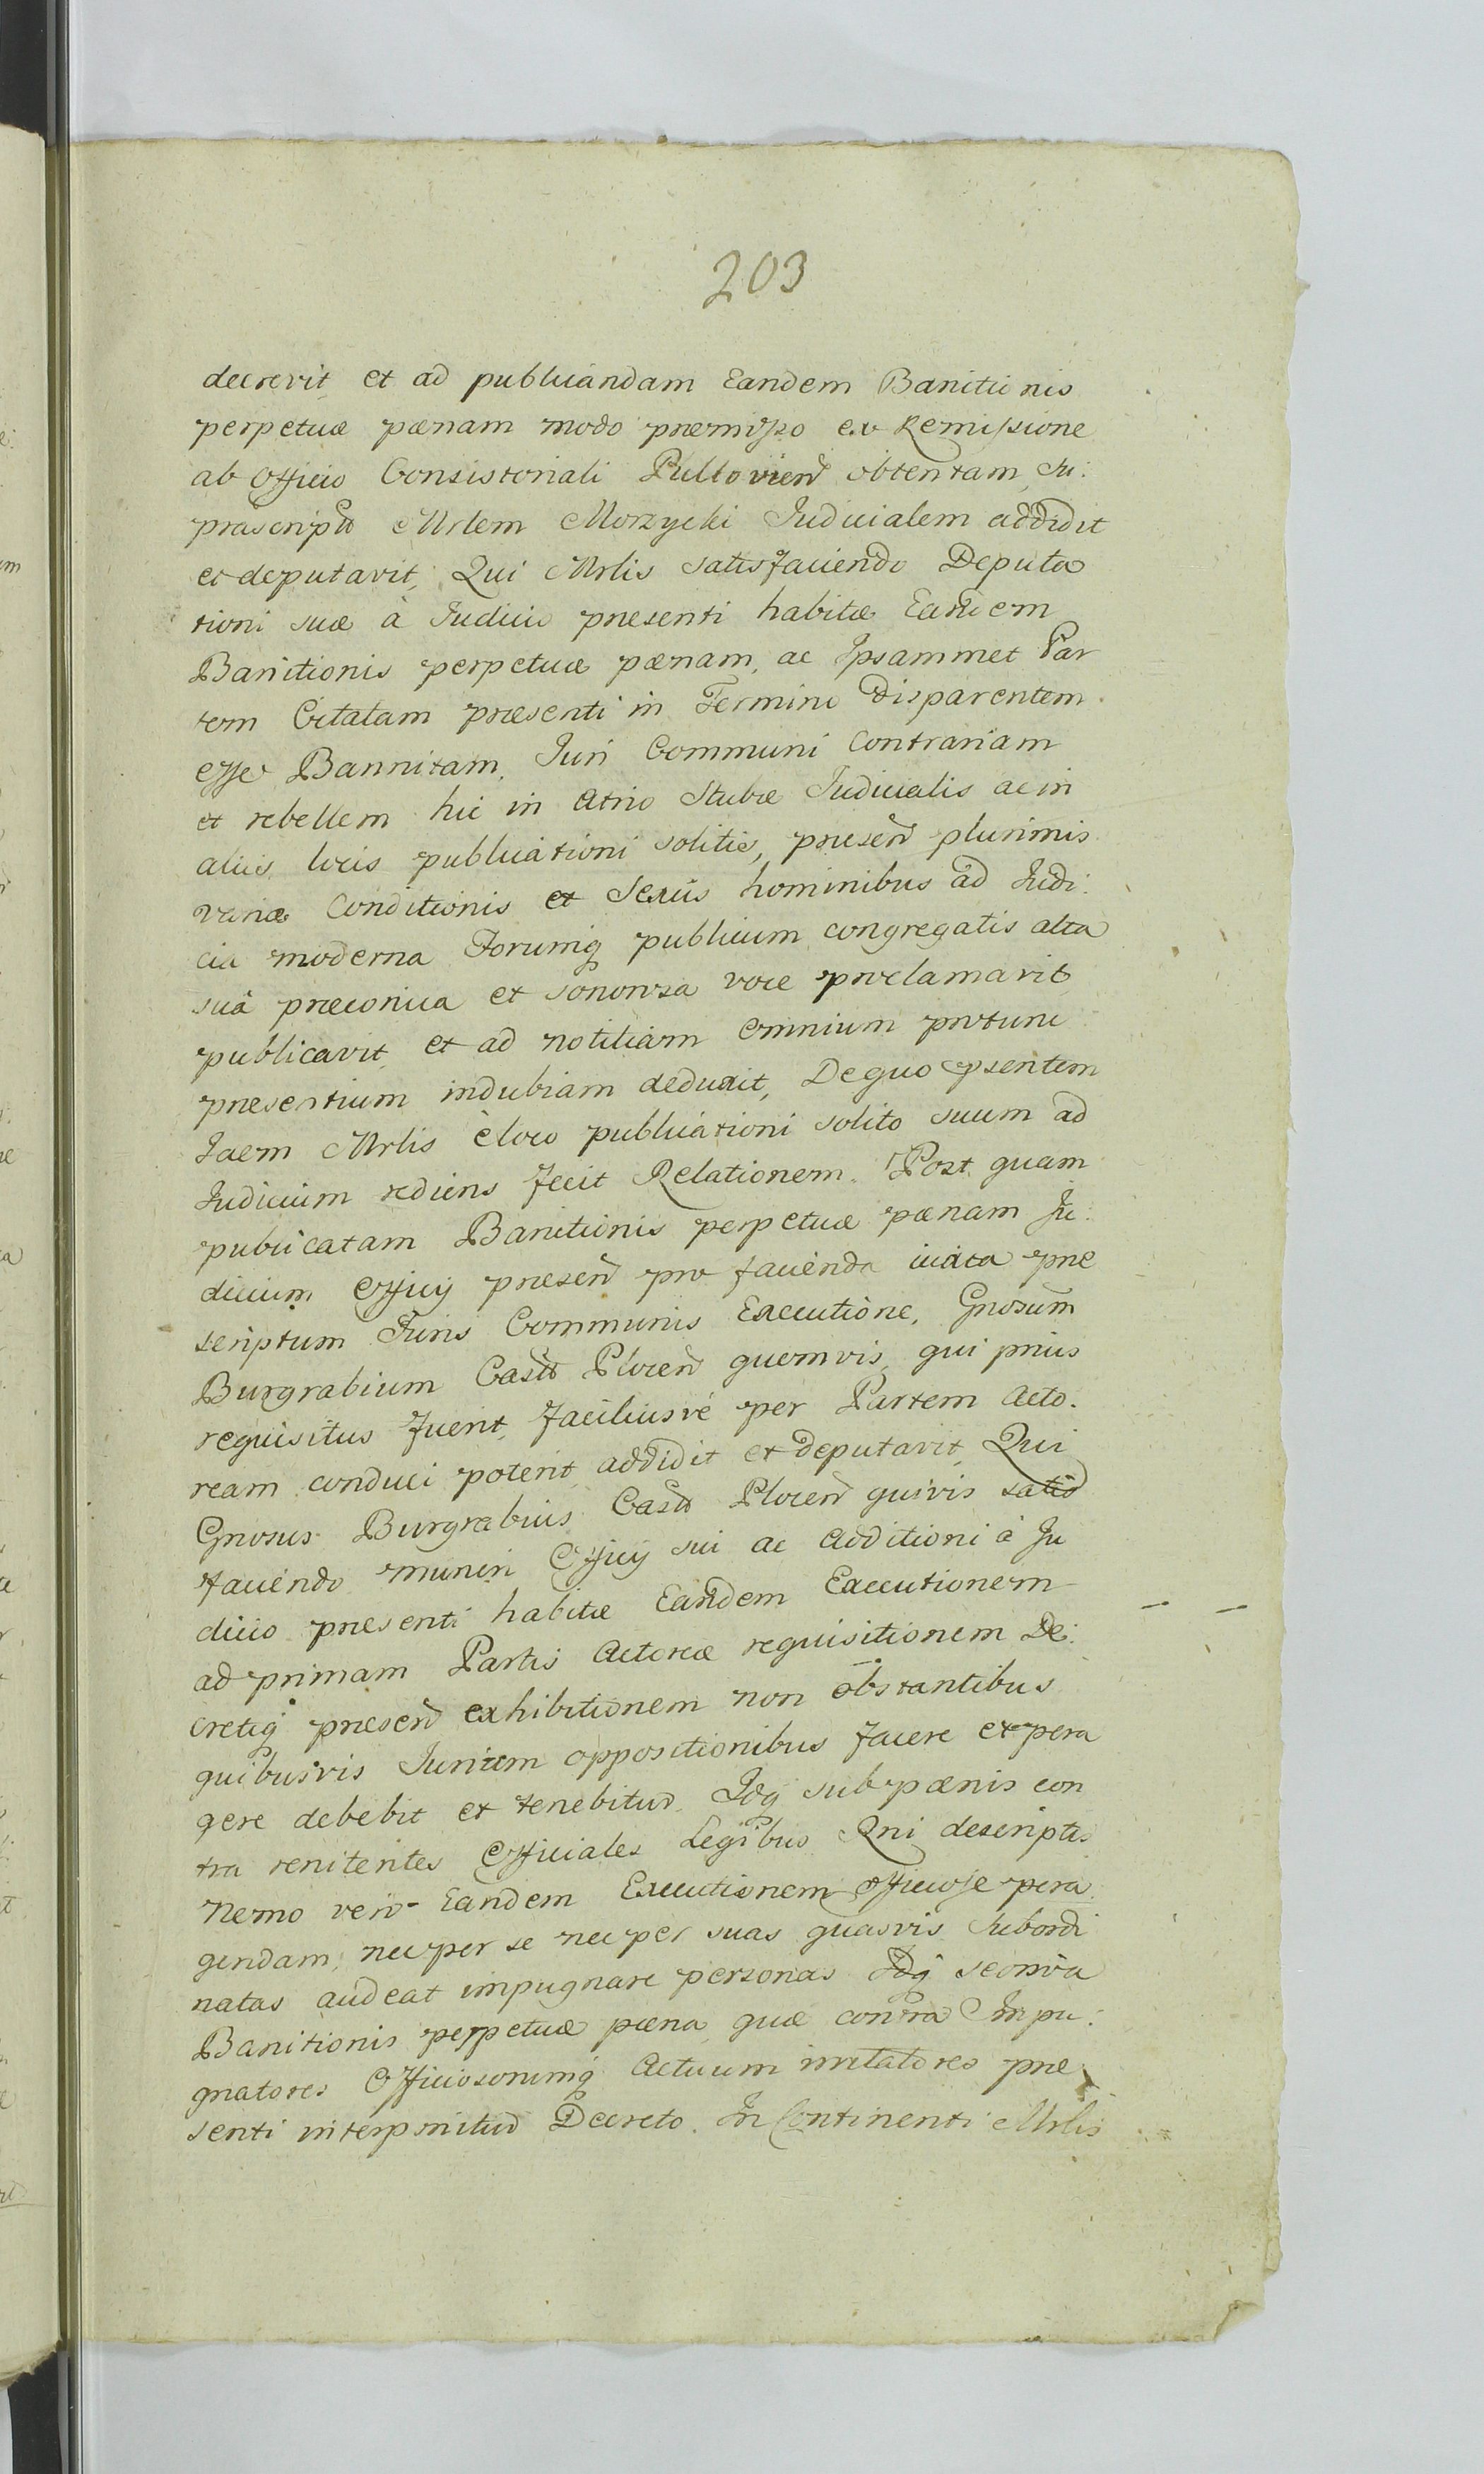 203
decrevit, et ad publicandam Eandem Banitionis
perpetuæ pænam modo præmisso ex Remissione
ab Officio Consistoriali Pultovien obtentam, Su:
præscriptt Mrlem Morzycki Judicialem addidit
et deputavit, Qui Mrlis satisfaciendo Deputa
tioni suæ à Judicio præsenti habitæ Eandem
Banitionis perpetuæ pænam, ac Ipsammet Par
tem Citatam præsenti in Termino Disparentem
esse Bannitam, Juri Communi Contrariam
et rebellem hic in Atrio Stubæ Judicialis ac in
aliis locis publicationi solitis, præsen plurimis
variæ Conditionis et Sexus hominibus ad Judi:
cia moderna Forumq publicum congregatis alta
suâ præconica et sonorosa voce proclamavit,
publicavit, et ad notitiam omnium protunc
præsentium indubiam deduxit, De quo psentem
Idem Mrlis è loco publicationi solito suum ad
Judicium rediens fecit Relationem. Post quam
publicatam Banitionis perpetuæ pænam Ju:
dicium Officij præsen pro facienda iuxta præ
scriptum Juris Communis Executione, Gnosum
Burgrabium Castt Plocen quemvis, qui prius
requisitus fuerit, faciliusvé per Partem Acto.
ream conduci poterit, addidit et deputavit, Qui
Gnosus Burgrabius Castt Plocen quivis satis
faciendo muneri Officij sui ac Additioni à Ju
dicio præsenti habitæ Eandem Executionem
ad primam Partis Actoreæ requisitionem De:
cretiq præsen exhibitionem non obstantibus
quibusvis Juritem oppositionibus facere et pera
gere debebit et tenebitur, Idq sub pænis con
tra renitentes Officiales Legibus Rni descriptis
Nemo vero Eandem Executionem officiose pera
gendam, nec per se nec per suas quasvis Subordi
natas audeat impugnare personas Idq
Banitionis perpetuæ pæna, quæ contra Impu:
gnatores Officiosorumq Actuum irritatores præ
senti interponitur Decreto. In Continenti Mrlis